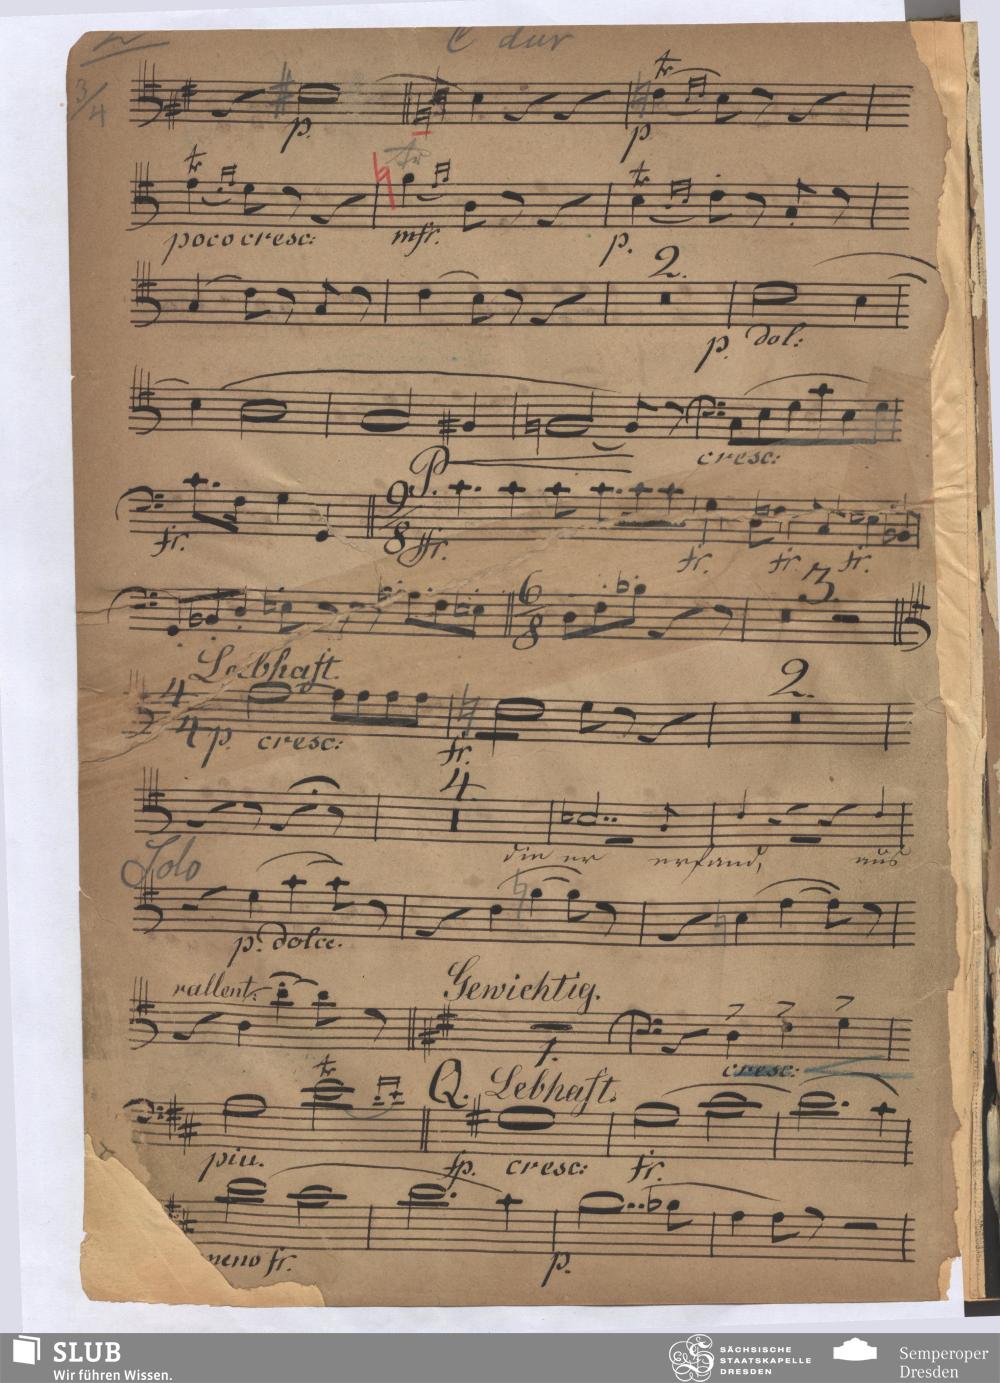 C dur
3/4
p. p
tr
tr tr tr
poco cresc: mfr. p.
2.
p. dol:
cresc:
P.
9/8
fr. ffr. fr. fr. fr.
6/8 3.
Lebhaft.
4/4 2.
p. cresc: fr.
4.
die er erfand, aus
Solo
p. dolce.
rallent: Gewichtig.
1. cresc:
tr Q. Lebhaft.
piu. fp. cresc: fr.
meno fr. p.
SLUB
Wir führen Wissen.
SÄCHSISCHE
STAATSKAPELLE
DRESDEN
Semperoper
Dresden